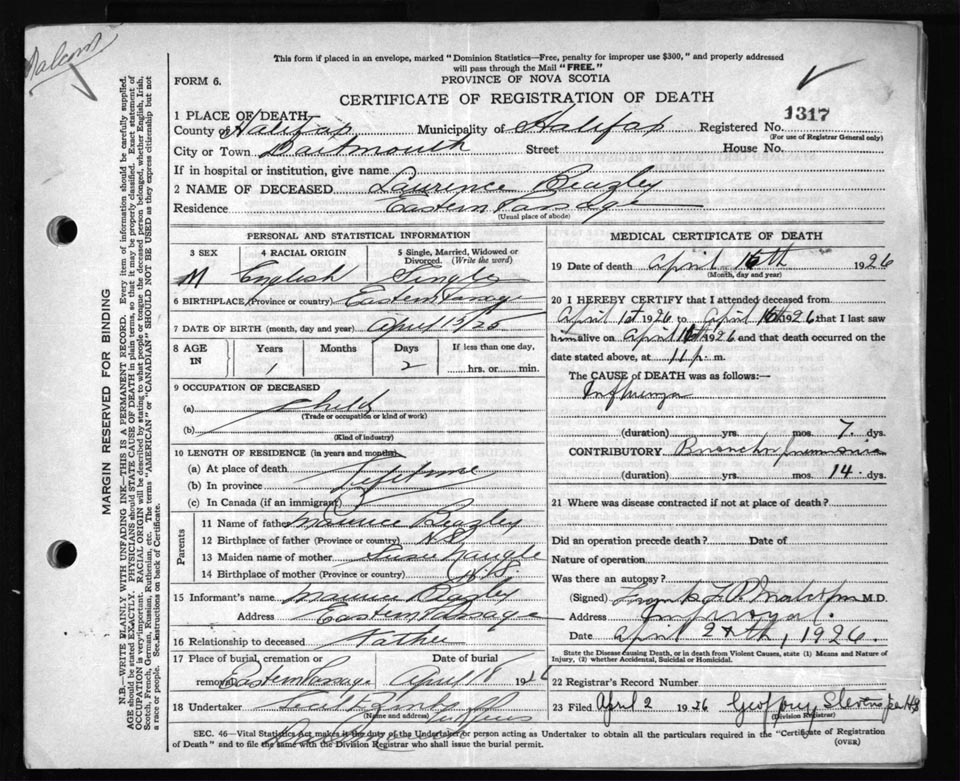 Malcom
This form if placed in an envelope, marked “Dominion Statistics—Free, penalty for improper use $300,” and properly addressed
will pass through the Mail “FREE.”
FORM 6.
PROVINCE OF NOVA SCOTIA
CERTIFICATE OF REGISTRATION OF DEATH
1317
1 PLACE OF DEATH
County of Halifax Municipality of Halifax Registered No.
(For use of Registrar General only)
City or Town Dartmouth Street House No.
If in hospital or institution, give name
2 NAME OF DECEASED Laurence Beazley
Residence Eastern Passage
(Usual place of abode)
PERSONAL AND STATISTICAL INFORMATION
3 SEX 4 RACIAL ORIGIN 5 Single, Married, Widowed or Divorced. (Write the word)
M English Single
6 BIRTHPLACE (Province or country) Eastern Passage
7 DATE OF BIRTH (month, day and year) April 15/25
8 AGE IN Years Months Days If less than one day,
1 2 hrs. or min.
9 OCCUPATION OF DECEASED
(a) Child
(Trade or occupation or kind of work)
(b)
(Kind of industry)
10 LENGTH OF RESIDENCE (in years and months)
(a) At place of death
(b) In province Lifetime
(c) In Canada (if an immigrant)
Parents
11 Name of father Maurice Beazley
12 Birthplace of father (Province or country) N.S.
13 Maiden name of mother Susie Naugle
14 Birthplace of mother (Province or country) N.S.
15 Informant's name Maurice Beazley
Address Eastern Passage
16 Relationship to deceased Father
17 Place of burial, cremation or removal Date of burial
Eastern Passage April 18 1926
18 Undertaker
(Name and address)
MEDICAL CERTIFICATE OF DEATH
19 Date of death April 16th 1926
(Month, day and year)
20 I HEREBY CERTIFY that I attended deceased from
April 1st 1926 to April 16th 1926 that I last saw
him alive on April 16th 1926 and that death occurred on the
date stated above, at 11 p. m.
The CAUSE of DEATH was as follows:—
Influenza
(duration) yrs. mos. 7. dys.
CONTRIBUTORY Broncho pneumonia
(duration) yrs. mos. 14. dys.
21 Where was disease contracted if not at place of death?
Did an operation precede death? Date of
Nature of operation
Was there an autopsy?
(Signed) Frank G. Malcolm M.D.
Address
Date April 1926.
State the Disease causing Death, or in death from Violent Causes, state (1) Means and Nature of
Injury, (2) whether Accidental, Suicidal or Homicidal.
22 Registrar's Record Number
23 Filed April 2 1926 Geoffrey Stevens
(Division Registrar)
SEC. 46—Vital Statistics Act makes it the duty of the Undertaker or person acting as Undertaker to obtain all the particulars required in the “Certificate of Registration
of Death” and to file the same with the Division Registrar who shall issue the burial permit.
(OVER)
MARGIN RESERVED FOR BINDING
N.B.—WRITE PLAINLY WITH UNFADING INK—THIS IS A PERMANENT RECORD. Every item of information should be carefully supplied.
AGE should be stated EXACTLY. PHYSICIANS should STATE CAUSE OF DEATH in plain terms, so that it may be properly classified. Exact statement of
OCCUPATION is very important. RACIAL ORIGIN will be described by stating to what people or tongue the deceased person belonged, whether English, Irish,
Scotch, French, German, Russian, Ruthenian, etc. The terms “AMERICAN” or “CANADIAN” SHOULD NOT BE USED as they express citizenship but not
a race or people. See instructions on back of Certificate.